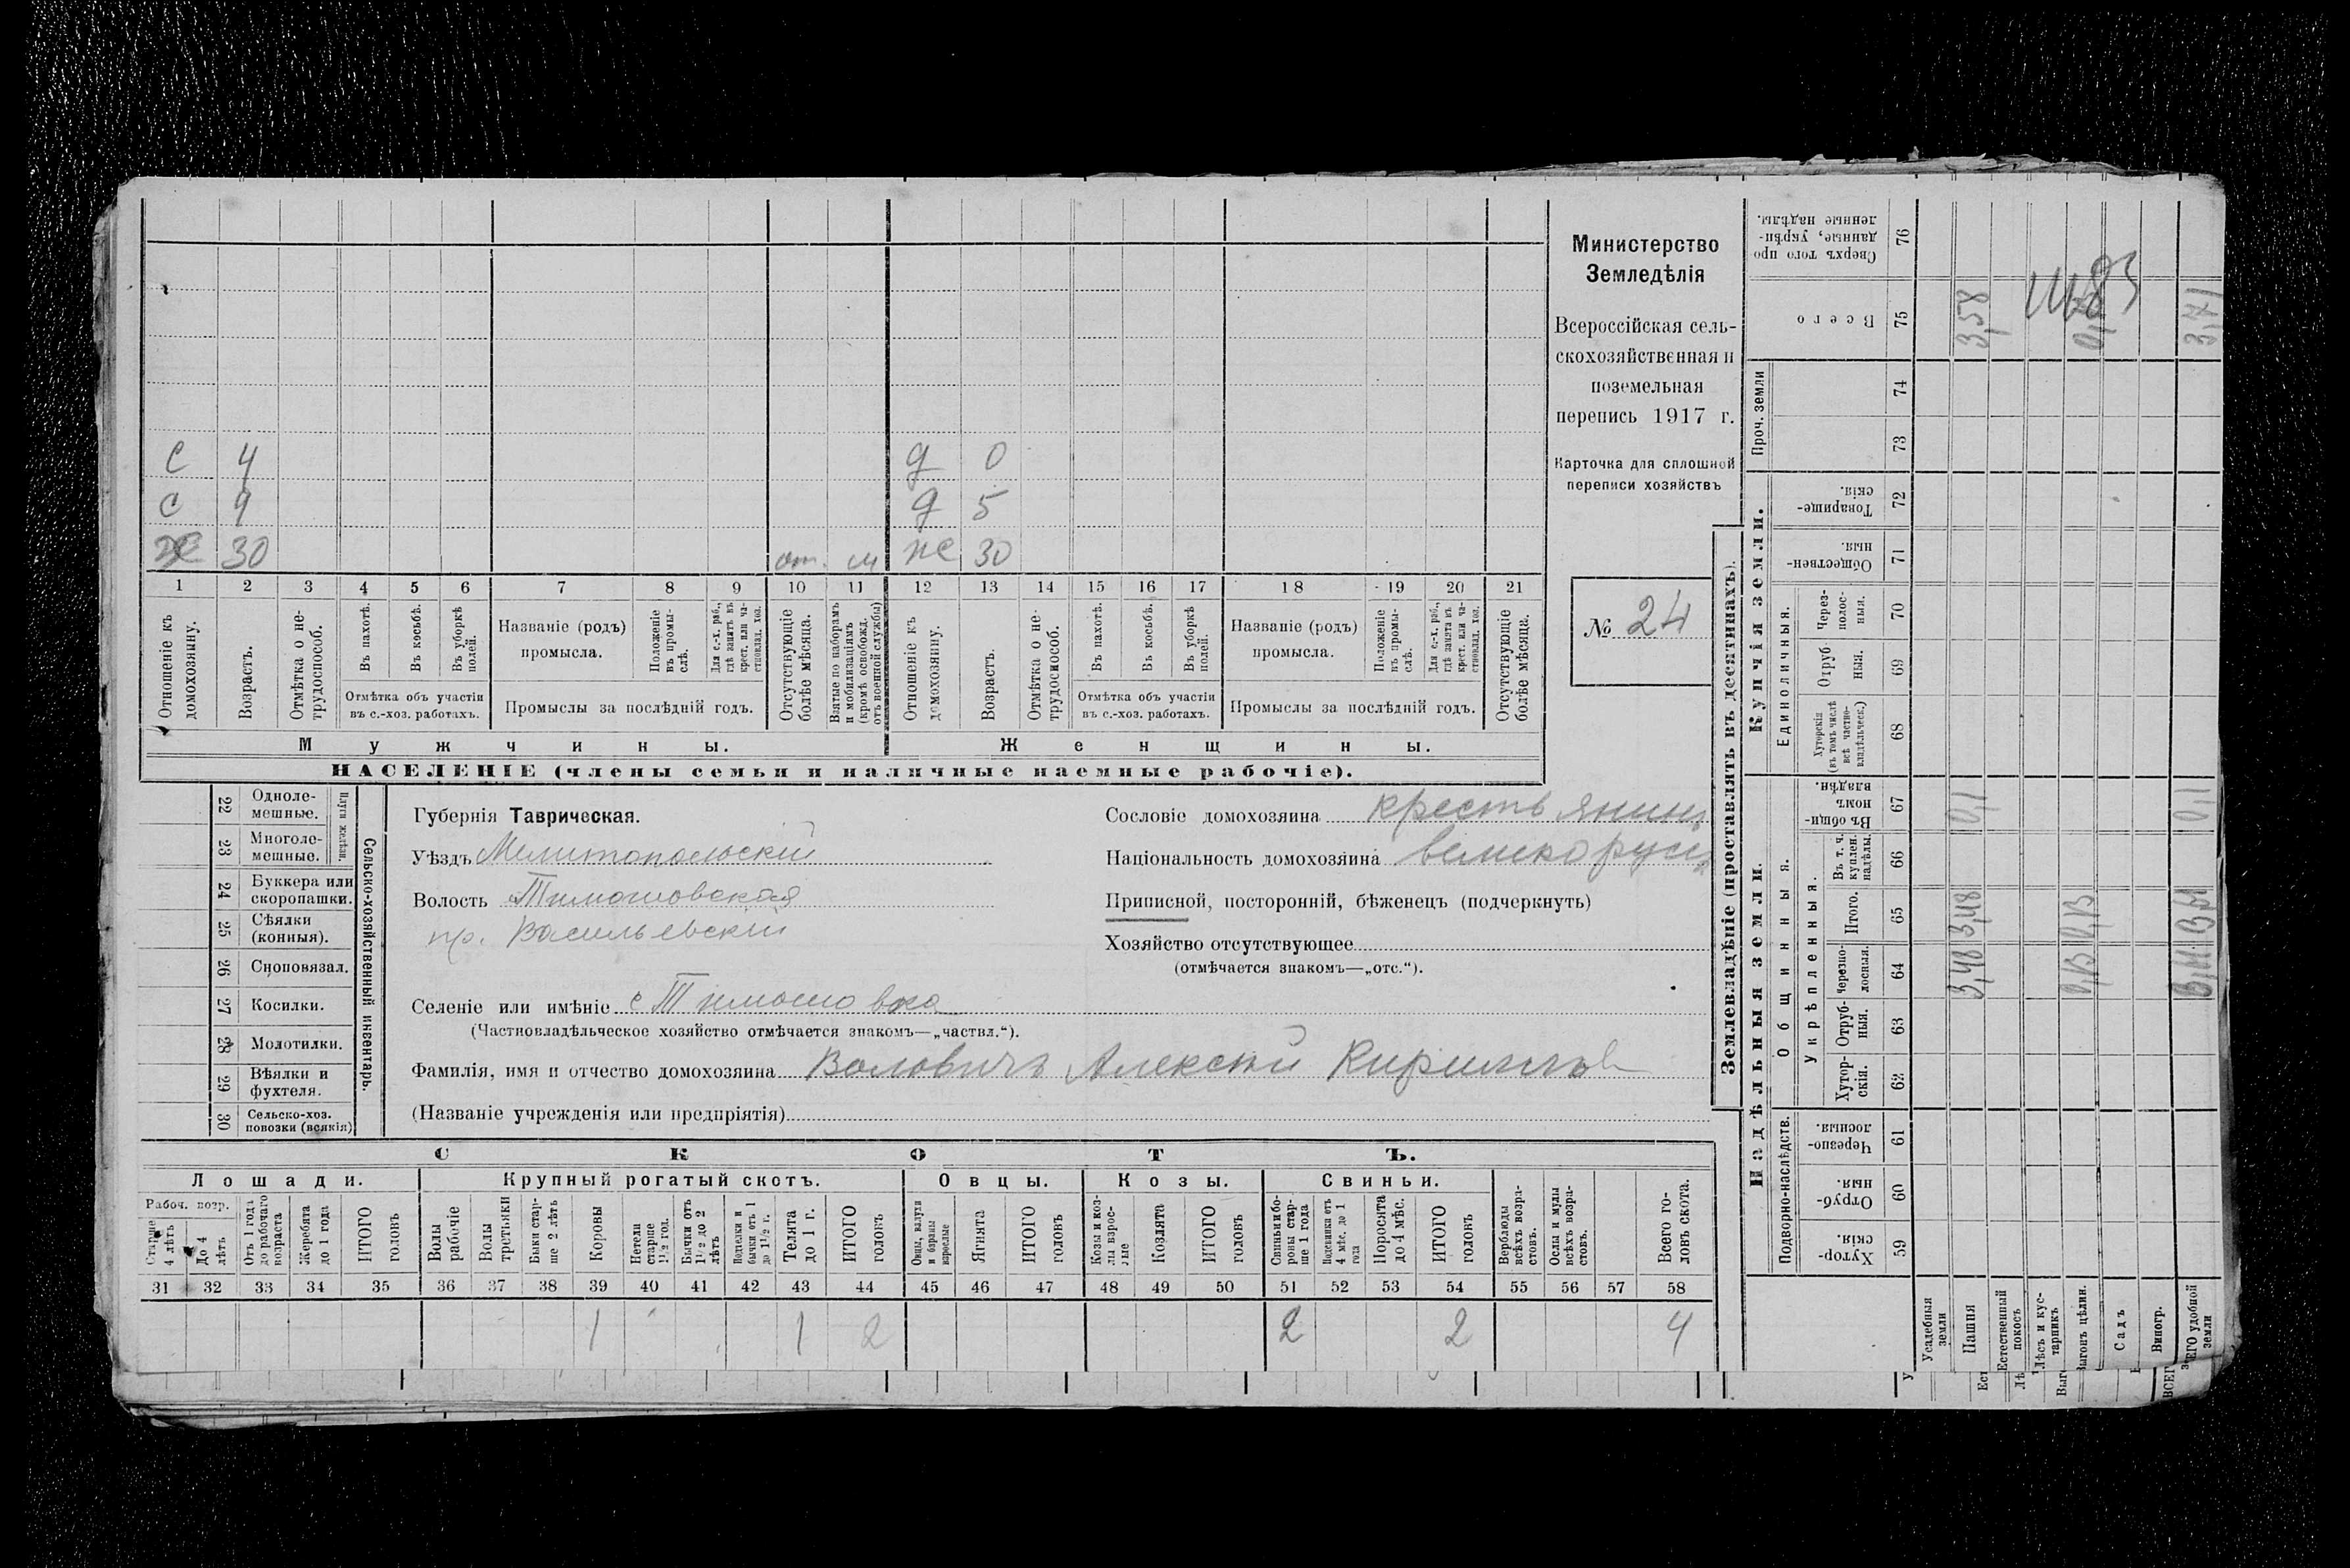 Министерство
Земледѣлія
Всероссійская сель-
скохозяйственная и
поземельная
перепись 1917 г.
Карточка для сплошной
переписи хозяйствъ
№ 24
С 4
д 0
С 9
д 5
Ж 30 от. м
же 30
1 2 3 4 5 6 7 8 9 10 11 12 13 14 15 16 17 18 19 20 21
Отношеніе къ домохозяину.
Возрастъ.
Отмѣтка о не-трудоспособ.
Въ пахотѣ.
Въ косьбѣ.
Въ уборкѣ полей.
Отмѣтка объ участіи
въ с.-хоз. работахъ.
Названіе (родъ)
промысла.
Положеніе въ промы-слѣ.
Для с.-х. раб., гдѣ занятъ въ крест. или ча-стновлад. хоз.
Промыслы за послѣдній годъ.
Отсутствующіе болѣе мѣсяца.
Взятые по наборамъ и мобилизаціямъ (кромѣ освобожд. отъ военной службы)
Отношеніе къ домохозяину.
Возрастъ.
Отмѣтка о не-трудоспособ.
Въ пахотѣ.
Въ косьбѣ.
Въ уборкѣ полей.
Отмѣтка объ участіи
въ с.-хоз. работахъ.
Названіе (родъ)
промысла.
Положеніе въ промы-слѣ.
Для с.-х. раб., гдѣ занята въ крест. или ча-стновлад. хоз.
Промыслы за послѣдній годъ.
Отсутствующіе болѣе мѣсяца.
Мужчины.
Женщины.
НАСЕЛЕНІЕ (члены семьи и наличные наемные рабочіе).
Сельско-хозяйственный инвентарь.
Плуги желѣзн.
22 Одноле-мешные.
23 Многоле-мешные.
24 Буккера или скоропашки.
25 Сѣялки (конныя).
26 Сноповязал.
27 Косилки.
28 Молотилки.
29 Вѣялки и фухтеля.
30 Сельско-хоз. повозки (всякія)
Губернія Таврическая.
Уѣздъ Мелитопольскій
Волость Тимошовская
пр. Васильевскій
Селеніе или имѣніе с Тимошовка
(Частновладѣльческое хозяйство отмѣчается знакомъ—„частвл.“).
Фамилія, имя и отчество домохозяина Воловичъ Алексѣй Кирилловъ
(Названіе учрежденія или предпріятія)
Сословіе домохозяина крестьянинъ
Національность домохозяина великорусъ
Приписной, посторонній, бѣженецъ (подчеркнуть)
Хозяйство отсутствующее
(отмѣчается знакомъ—„отс.“).
СКОТЪ.
Лошади.
Крупный рогатый скотъ.
Овцы.
Козы.
Свиньи.
Рабоч. возр.
Старше 4 лѣтъ
До 4 лѣтъ
Отъ 1 года до рабочаго возраста
Жеребята до 1 года
ИТОГО головъ
Волы рабочіе
Волы третьяки
Быки стар-ше 2 лѣтъ
Коровы
Нетели старше 1½ год.
Бычки отъ 1½ до 2 лѣтъ
Подтелки и бычки отъ 1 до 1½ г.
Телята до 1 г.
ИТОГО головъ
Овцы, валухи и бараны взрослые
Ягнята
ИТОГО головъ
Козы и коз-лы взрос-лые
Козлята
ИТОГО головъ
Свиньи и бо-ровы стар-ше 1 года
Подсвинки отъ 4 мѣс. до 1 года
Поросята до 4 мѣс.
ИТОГО головъ
Верблюды всѣхъ возра-стовъ.
Ослы и мулы всѣхъ возра-стовъ.
Всего го-ловъ скота.
31 32 33 34 35 36 37 38 39 40 41 42 43 44 45 46 47 48 49 50 51 52 53 54 55 56 57 58
1 1 2 2 2 4
Землевладѣніе (проставлять въ десятинахъ).
Купчія земли.
Надѣльныя земли.
Проч. земли
Единоличныя.
Общинныя.
Укрѣпленныя.
Подворно-наслѣдств.
Сверхъ того про-данные, укрѣп-ленные надѣлы. 76
Всего 75 3,58 3,71
74
73
Товарище-скія. 72
Обществен-ныя. 71
Через-полос-ныя. 70
Отруб-ныя. 69
Хуторскія (въ томъ числѣ всѣ частно-владѣльческ.) 68
Въ общи-номъ владѣн. 67 0,1 0,1
Въ т. ч. куплен. надѣлы. 66
Итого. 65 3,48
Черезпо-лосныя. 64 3,48
Отруб-ныя. 63
Хутор-скія. 62
Черезпо-лосныя. 61
Отруб-ныя. 60
Хутор-скія. 59
Усадебныя земли
Пашня
Естественный покосъ
Лѣсъ и кус-тарникъ
Выгонъ цѣлин.
Садъ
Виногр.
ЕГО удобной земли